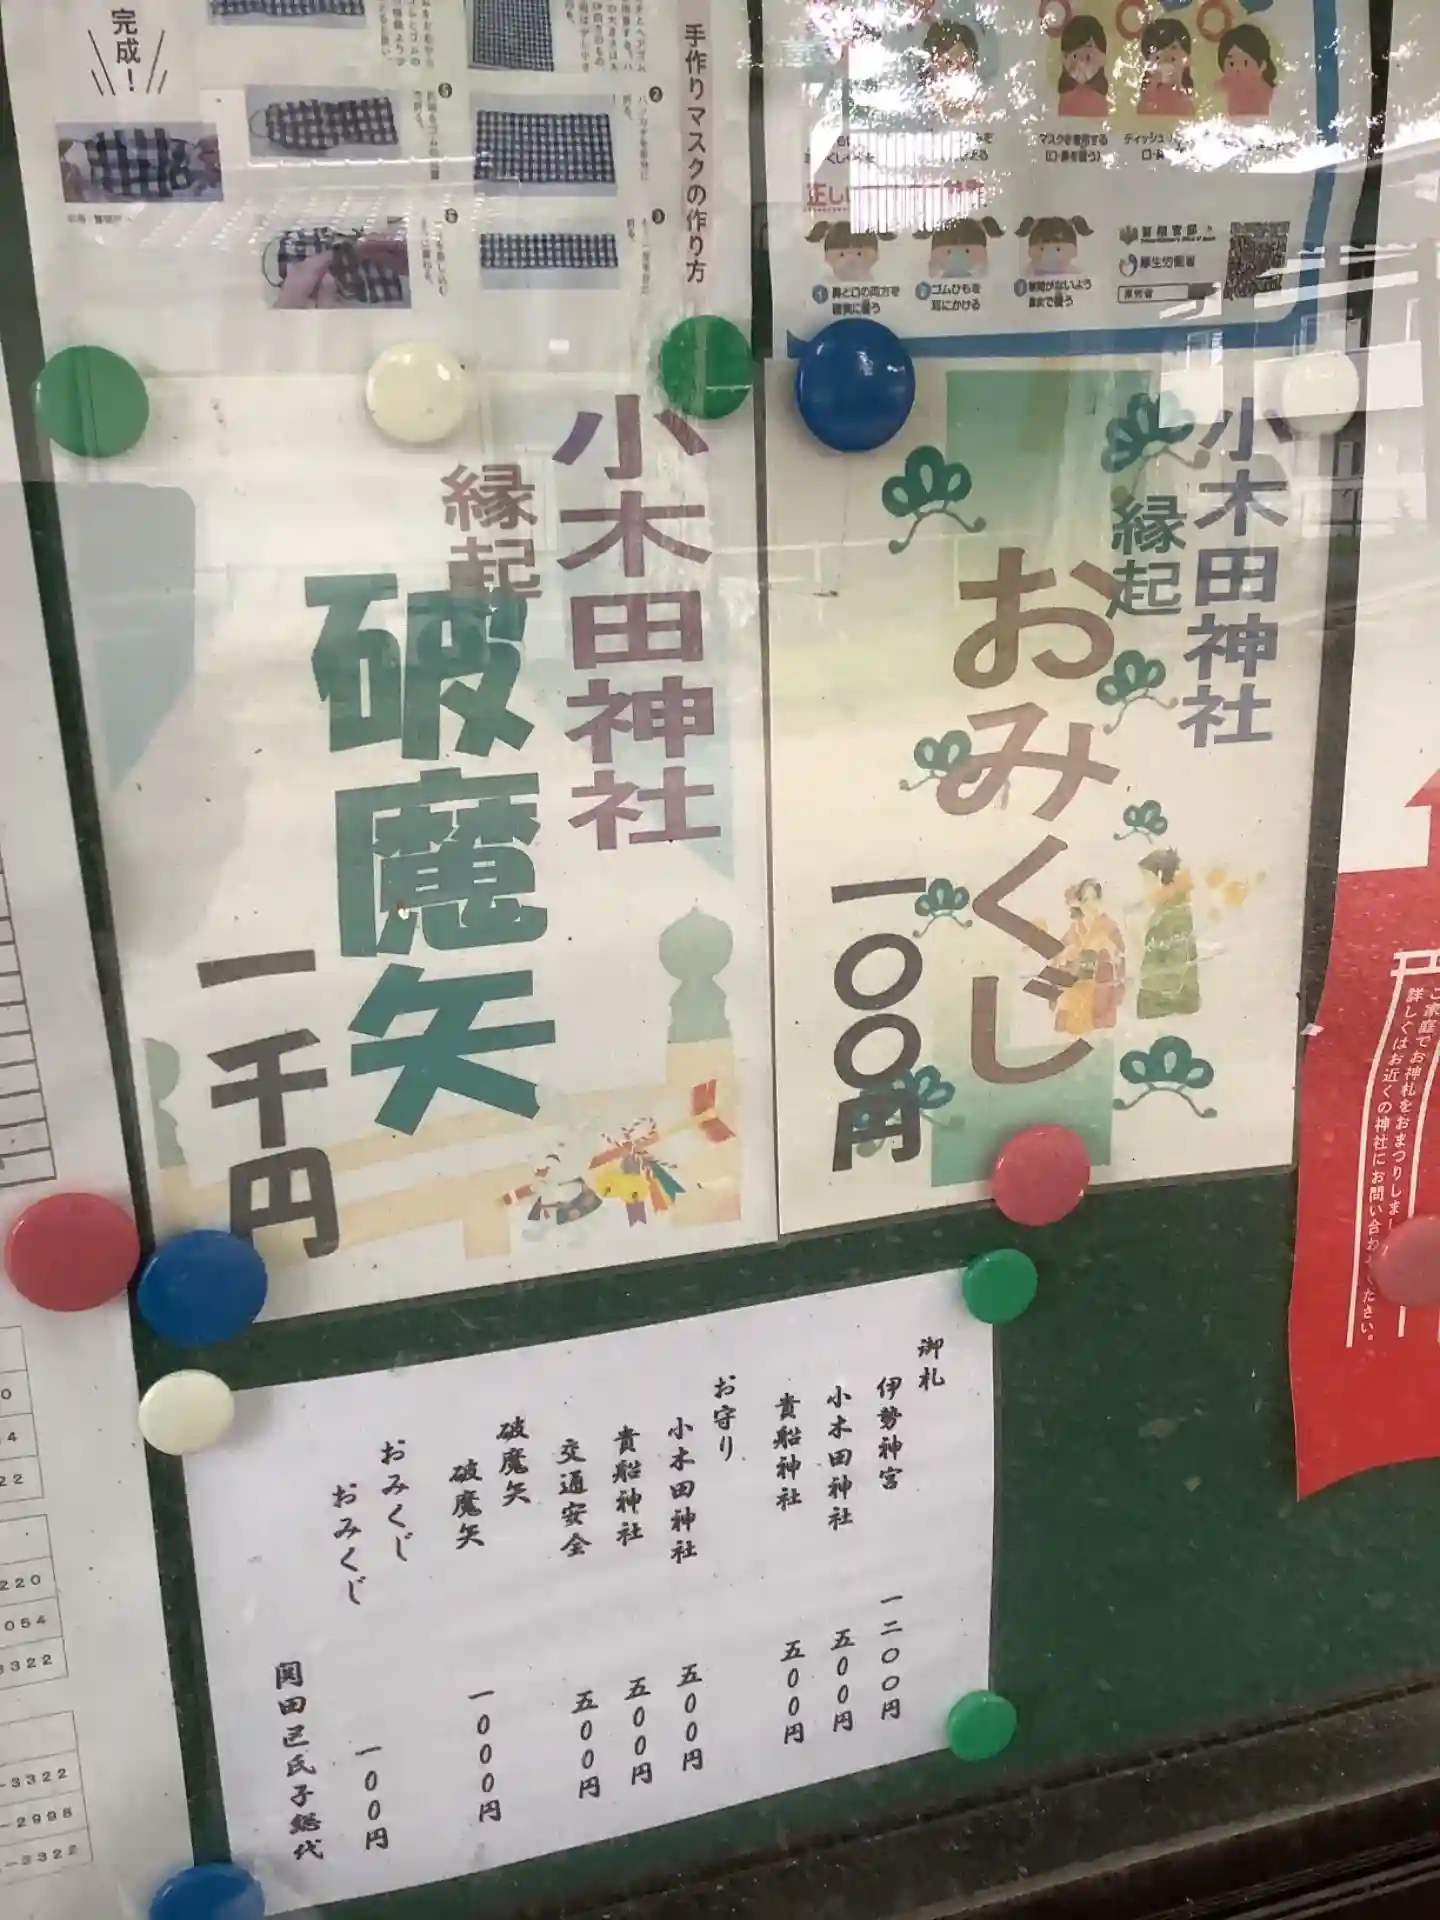 手作りマスクの作り方
完成！
マスクを着用する
（口・鼻を覆う）
正しい
鼻と口の両方を
確実に覆う
ゴムひもを
耳にかける
隙間がないよう
鼻まで覆う
首相官邸
厚生労働省
厚労省
小木田神社
縁起
破魔矢
一千円
小木田神社
縁起
おみくじ
一〇〇円
ご家庭でお神札をおまつりしまし
詳しくはお近くの神社にお問い合わせください。
御札
伊勢神宮 一二〇〇円
小木田神社 五〇〇円
貴船神社 五〇〇円
お守り
小木田神社 五〇〇円
貴船神社 五〇〇円
交通安全 五〇〇円
破魔矢
破魔矢 一〇〇〇円
おみくじ
おみくじ 一〇〇円
関田区氏子総代
220
054
3322
-3322
-2998
-3322